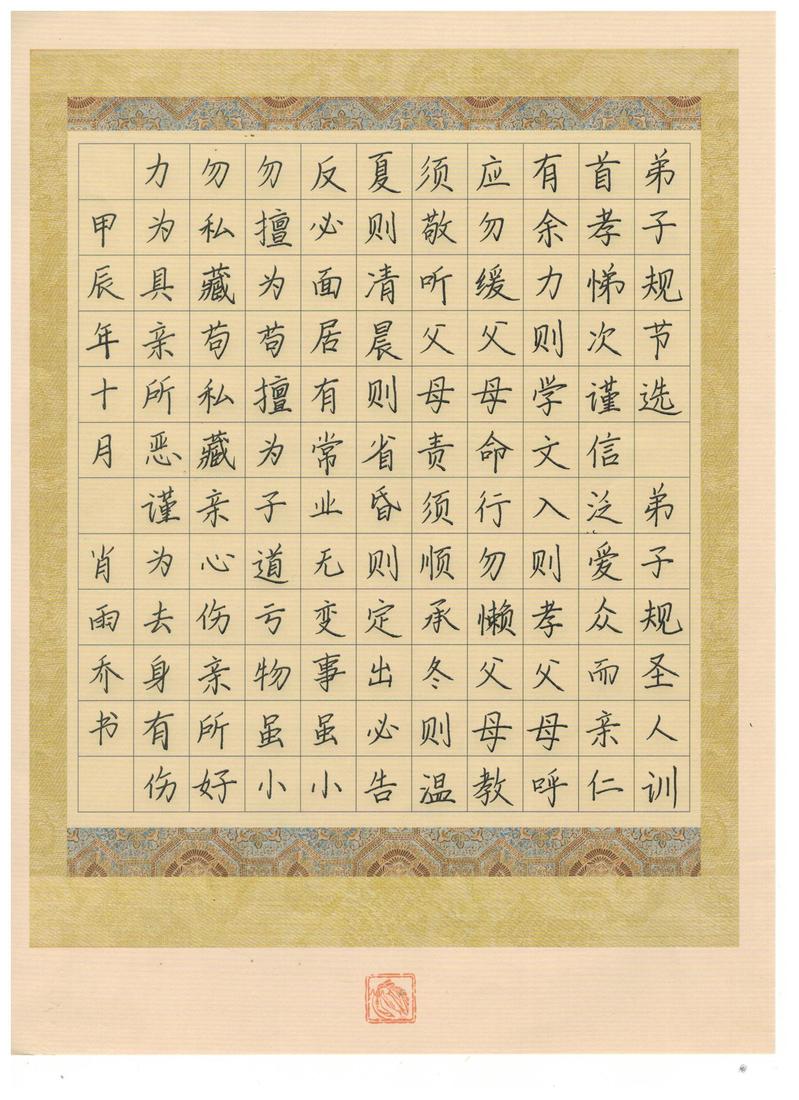 弟子规节选 弟子规圣人训
首孝悌次谨信泛爱众而亲仁
有余力则学文入则孝父母呼
应勿缓父母命行勿懒父母教
须敬听父母责须顺承冬则温
夏则凊晨则省昏则定出必告
反必面居有常业无变事虽小
勿擅为苟擅为子道亏物虽小
勿私藏苟私藏亲心伤亲所好
力为具亲所恶谨为去身有伤
甲辰年十月 肖雨乔书